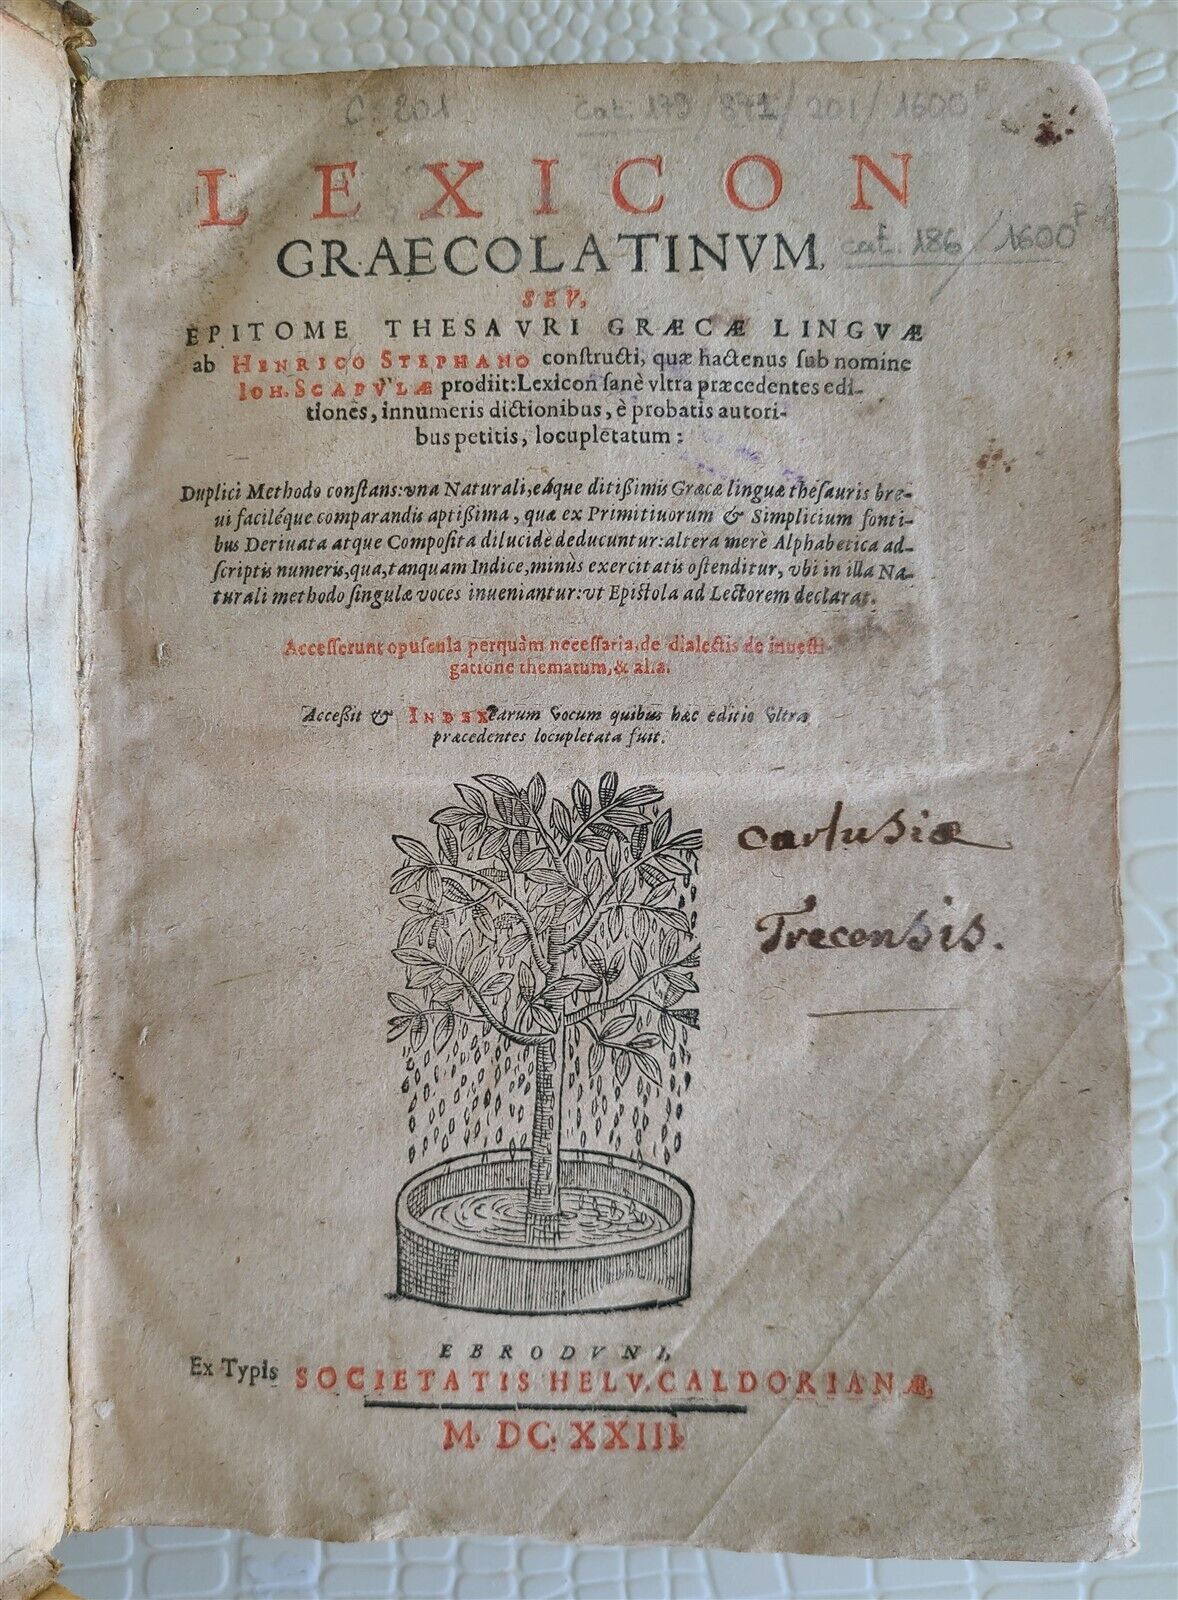 C 201
cat. 179/871/201/1600F
LEXICON
GRAECOLATINVM,
cat. 186/1600F
SEV,
EPITOME THESAVRI GRÆCÆ LINGVÆ
ab HENRICO STEPHANO conſtructi, quæ hactenus ſub nomine
IOH. SCAPVLÆ prodiit: Lexicon ſanè vltra præcedentes edi-
tiones, innumeris dictionibus, è probatis autori-
bus petitis, locupletatum:
Duplici Methodo conſtans: vna Naturali, eáque ditißimis Græcæ linguæ theſauris bre-
ui faciléque comparandis aptißima, quæ ex Primitiuorum & Simplicium fonti-
bus Deriuata atque Compoſita dilucidè deducuntur: altera merè Alphabetica ad-
ſcriptis numeris, qua, tanquam Indice, minùs exercitatis oſtenditur, vbi in illa Na-
turali methodo ſingulæ voces inueniantur: vt Epiſtola ad Lectorem declarat.
Acceſſerunt opuſcula perquàm neceſſaria, de dialectis de inueſti-
gatione thematum, & alia.
Acceßit & INDEX earum vocum quibus hæc editio vltra
præcedentes locupletata fuit.
Cartusiæ
Trecensis.
EBRODVNI,
Ex Typis SOCIETATIS HELV. CALDORIANÆ,
M. DC. XXIII.